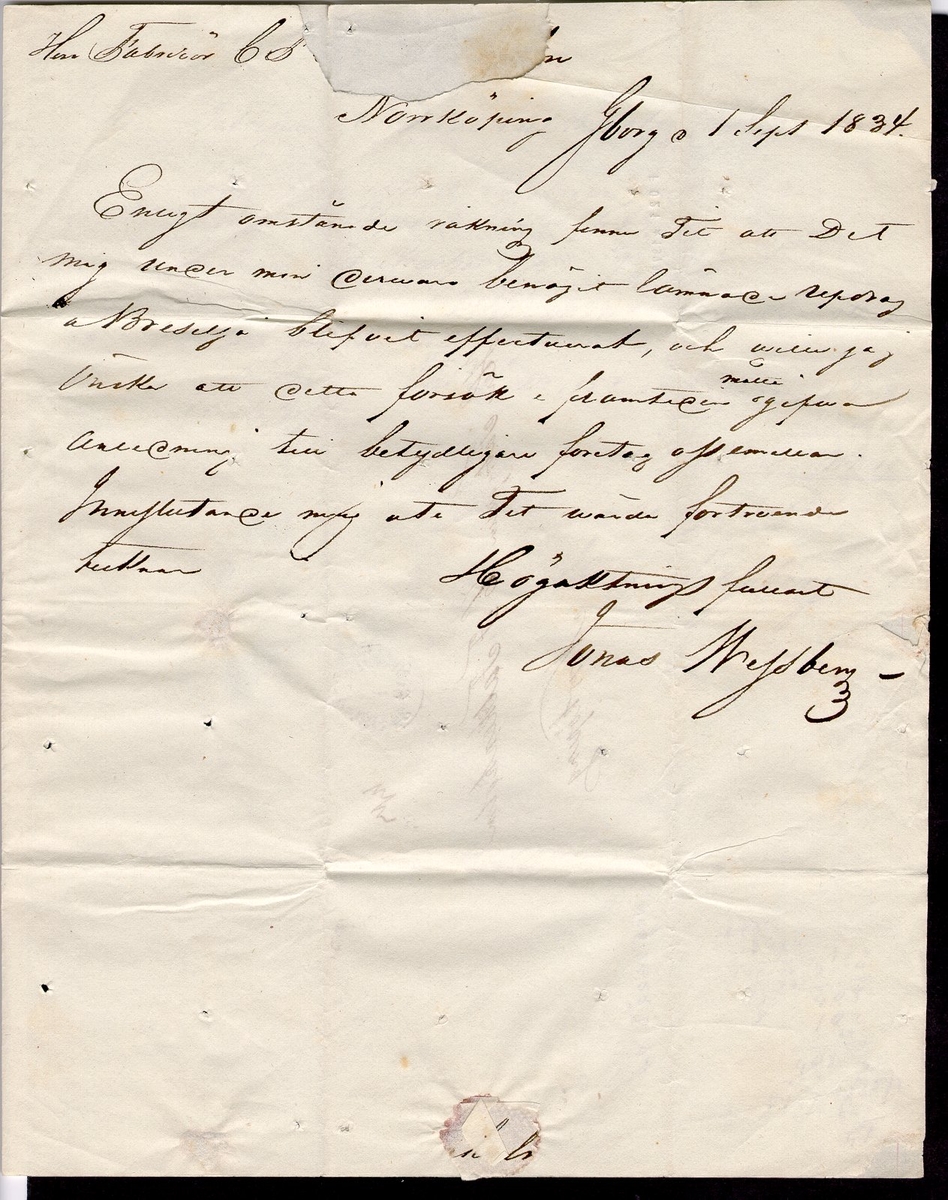 Herr Fabrikör C F n
Norrköping Gborg d 1 Sept 1834.
Enligt omstående räkning finner Tit att Det
mig under min dervaro benäget lämnade updrag
blifvit effectuerat, och vill jag
önska att detta försök i framtiden måtte gifva
anledning till betydligare företag ossemellan.
Inneslutande mig uti Tit värda förtroende
tecknar Högaktningsfullast
Jonas Wessberg